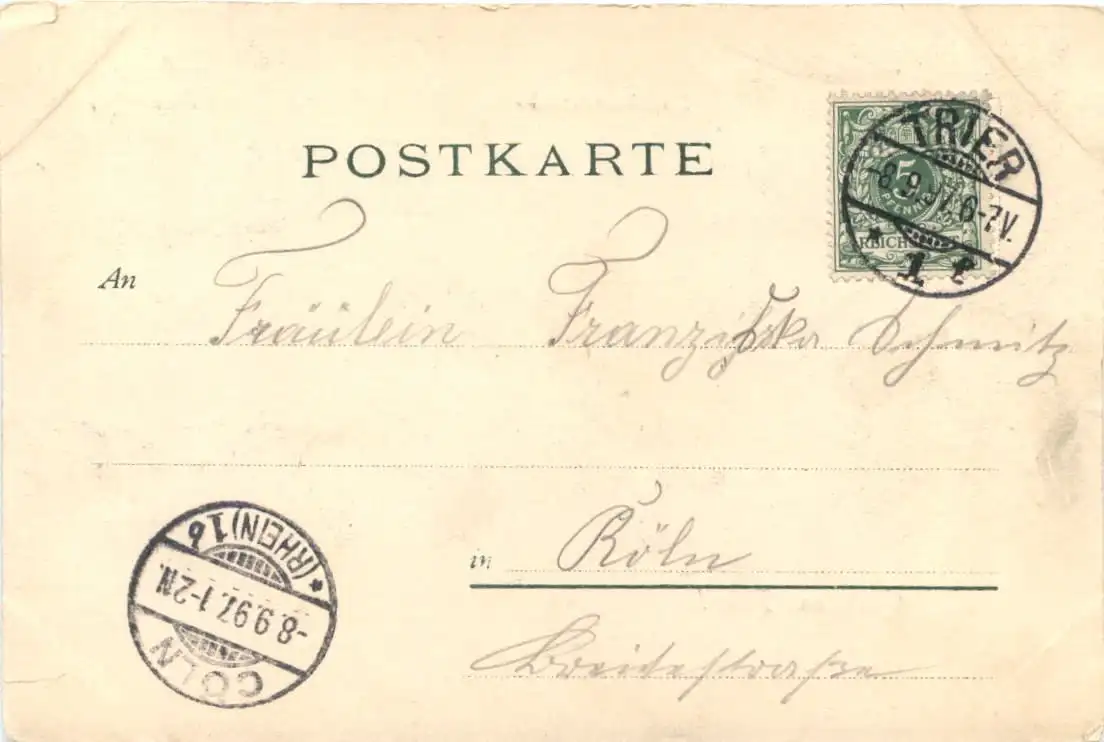 POSTKARTE
5
PFENNIG
REICHSPOST
TRIER
-8.9.97.6-7V.
* 1 c
An Fräulein Franziska Schmitz
in Köln
Breitestraße
CÖLN
-8.9.97.1-2N.
* (RHEIN) 1 b